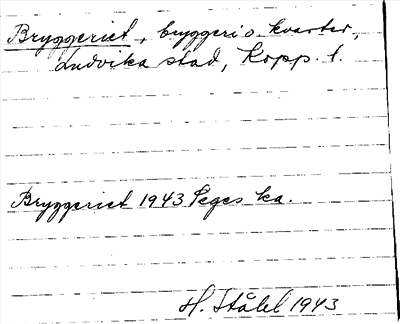 Bryggeriet, bryggeri o. kvarter,
Ludvika stad, Kopp. l.
Bryggeriet 1943 Seges ka.
H. Ståhl 1943